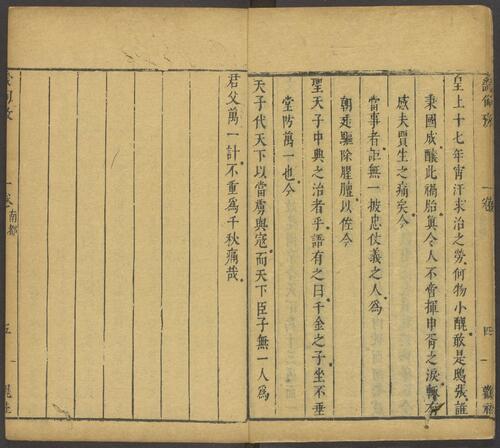 皇上十七年宵汗求治之勞何物小醜敢是鴟張誰
秉國成釀此禍胎眞令人不啻揮申胥之淚輒有
感夫賈生之痛矣今
當事者詎無一披忠仗義之人爲
朝廷驅除腥膻以佐今
聖天子中興之治者乎語有之曰千金之子坐不垂
堂防萬一也今
天子代天下以當虜與寇而天下臣子無一人爲
君父萬一計不重爲千秋痛哉
一卷
四
南都
五